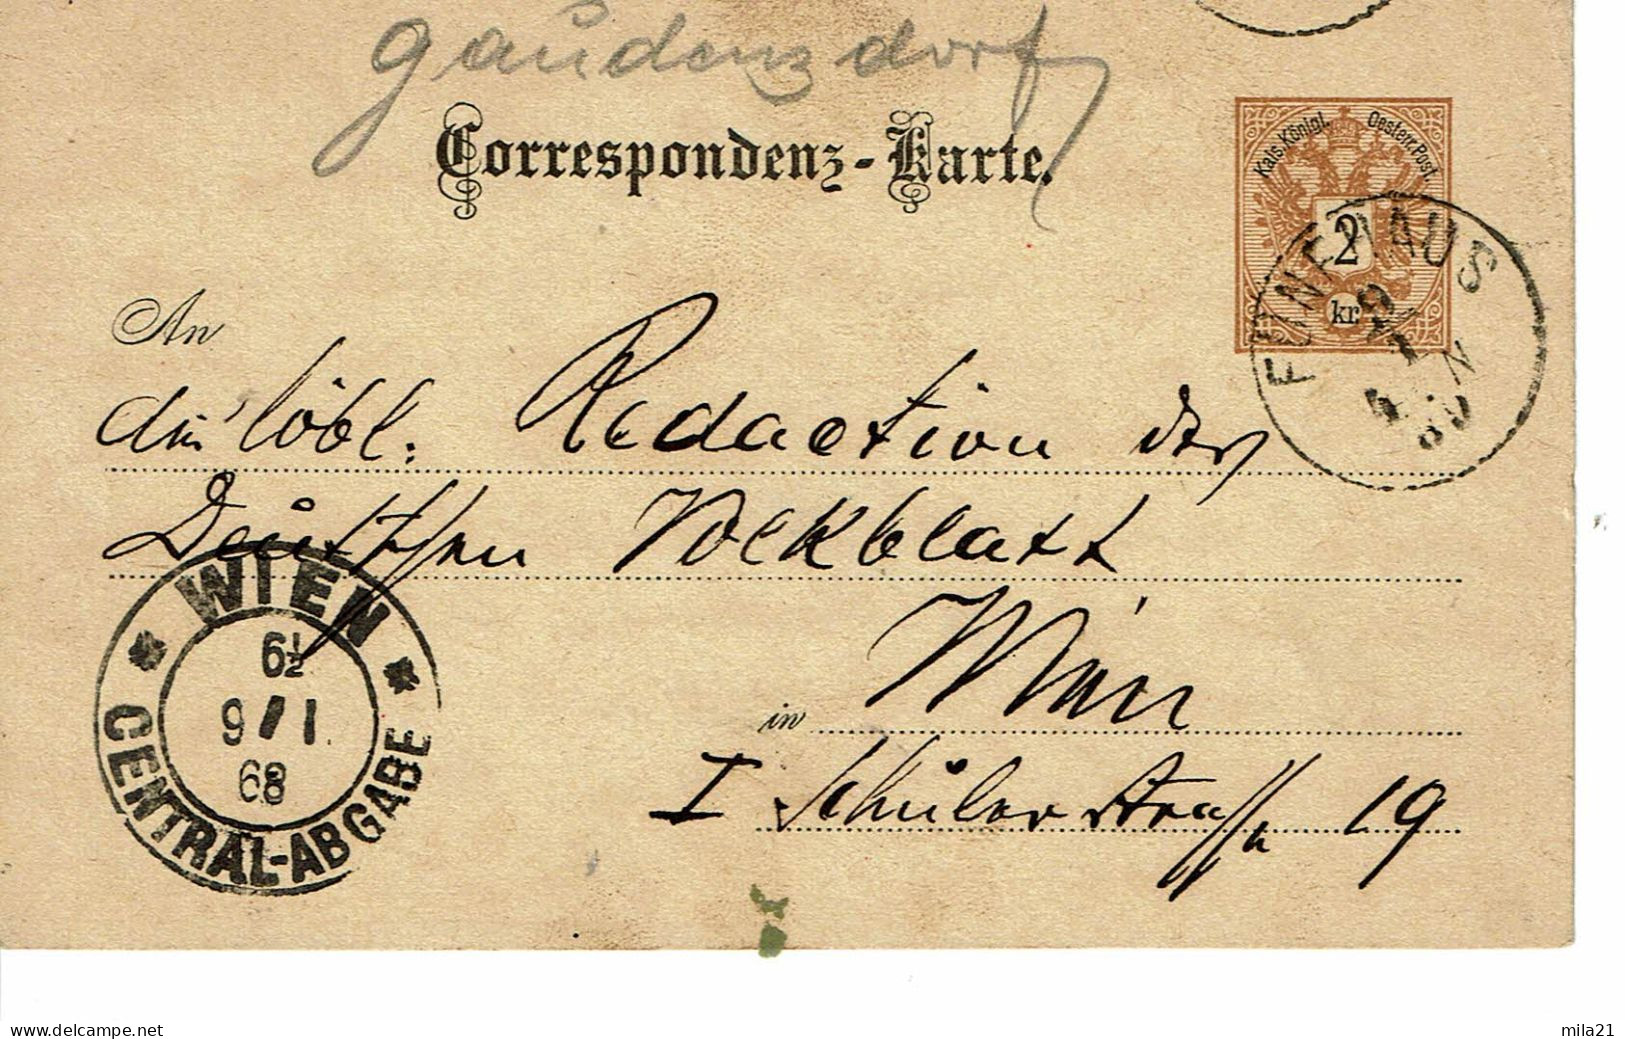 Gaudenzdorf
Correspondenz-Karte.
Kais. Königl. Oesterr. Post.
2
kr.
FÜNFHAUS
9
1
An
die löbl. Redaction der
Deutschen Volksblatt
WIEN
6½
9/I.
68
CENTRAL-ABGABE
in Wien
I Schülerstrasse 19
www.delcampe.net
mila21